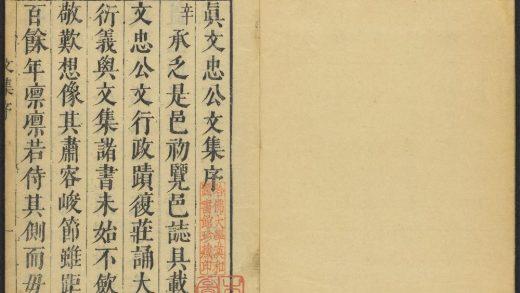 眞文忠公文集序
辛承乏是邑初覽邑誌具載
文忠公文行政蹟復莊誦大
衍義與文集諸書未始不斂
敬歎想像其肅容峻節雖距
百餘年凛凛若侍其側而
文集序
哈佛大學漢和
圖書館珍藏印